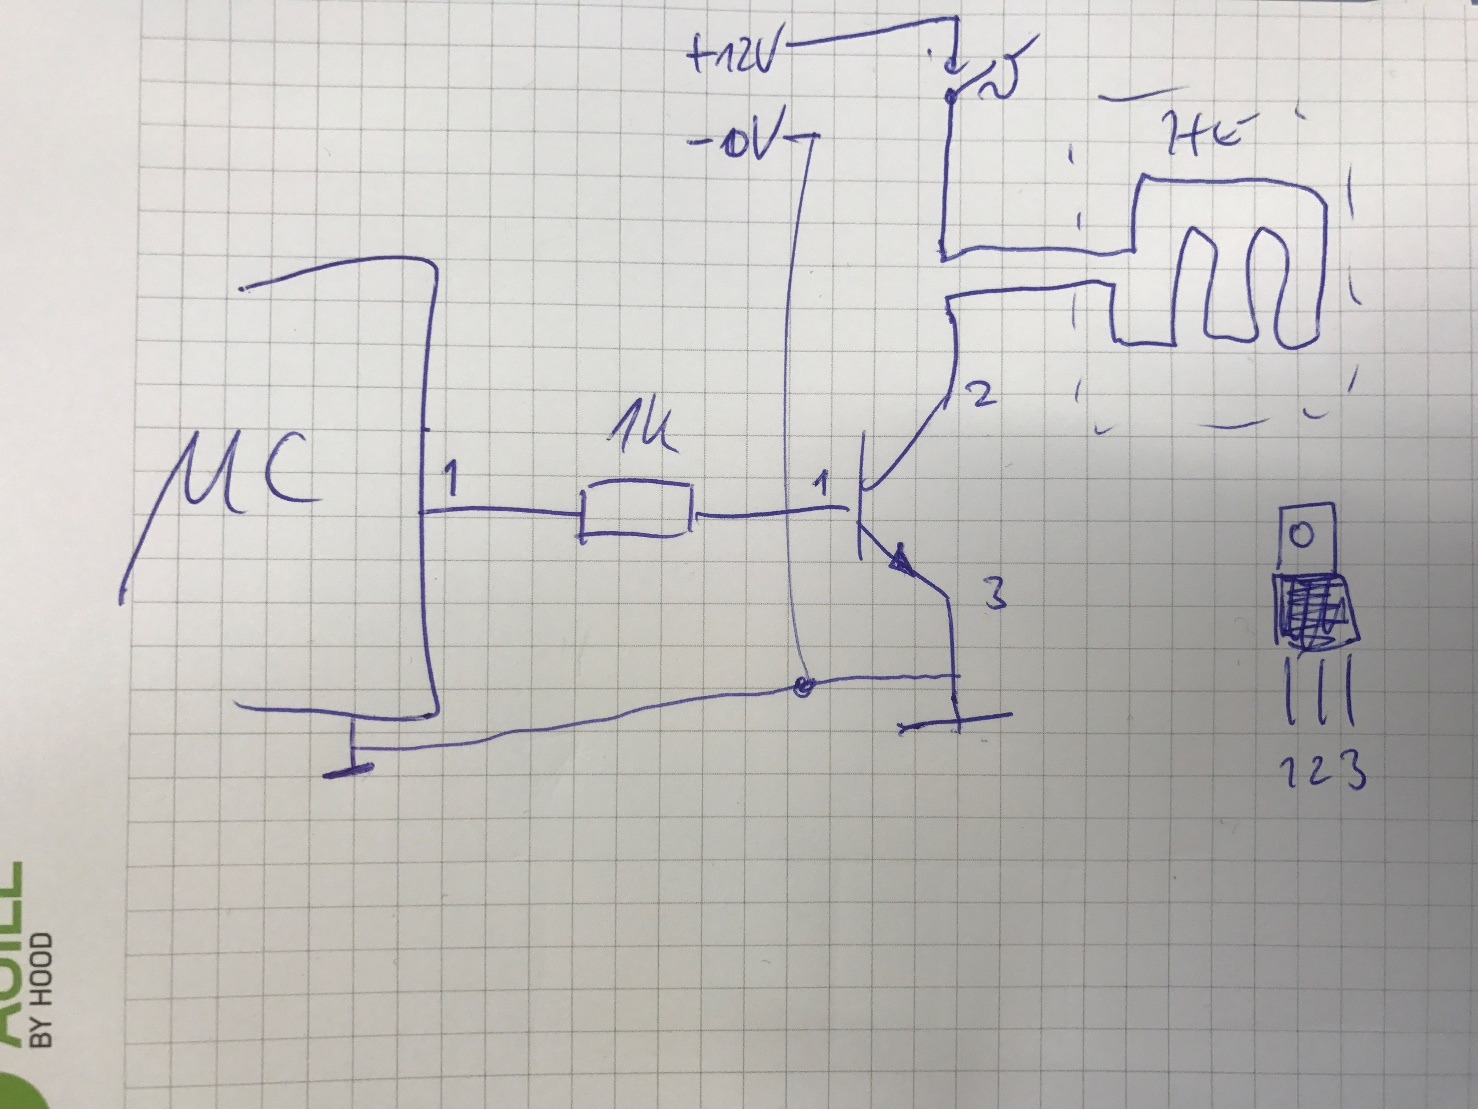 +12V
-0V
HE
1k
µC
1
1
2
3
123
AGILE
BY HOOD